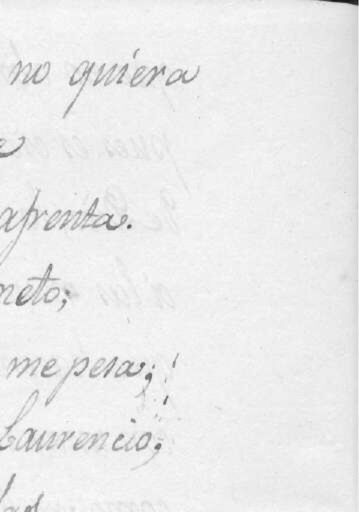 no quiera
e
afrenta.
neto;
me pesa;
Laurencio;
las